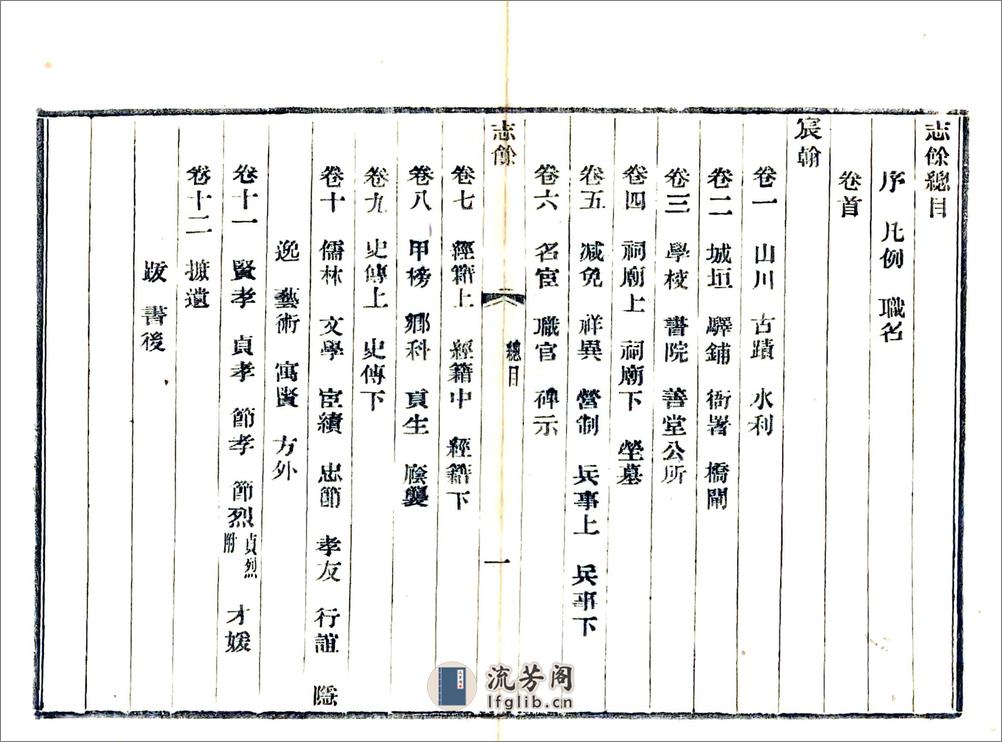 志餘總目
序 凡例 職名
卷首
宸翰
卷一 山川 古蹟 水利
卷二 城垣 驛鋪 衙署 橋閘
卷三 學校 書院 善堂公所
卷四 祠廟上 祠廟下 塋墓
卷五 減免 祥異 營制 兵事上 兵事下
卷六 名宦 職官 碑示
志餘 總目 一
卷七 經籍上 經籍中 經籍下
卷八 甲榜 鄉科 貢生 廕襲
卷九 史傳上 史傳下
卷十 儒林 文學 宦績 忠節 孝友 行誼 隱
逸 藝術 寓賢 方外
卷十一 賢孝 貞孝 節孝 節烈 貞烈附 才媛
卷十二 摭遺
跋 書後
流芳阁
lfglib.cn